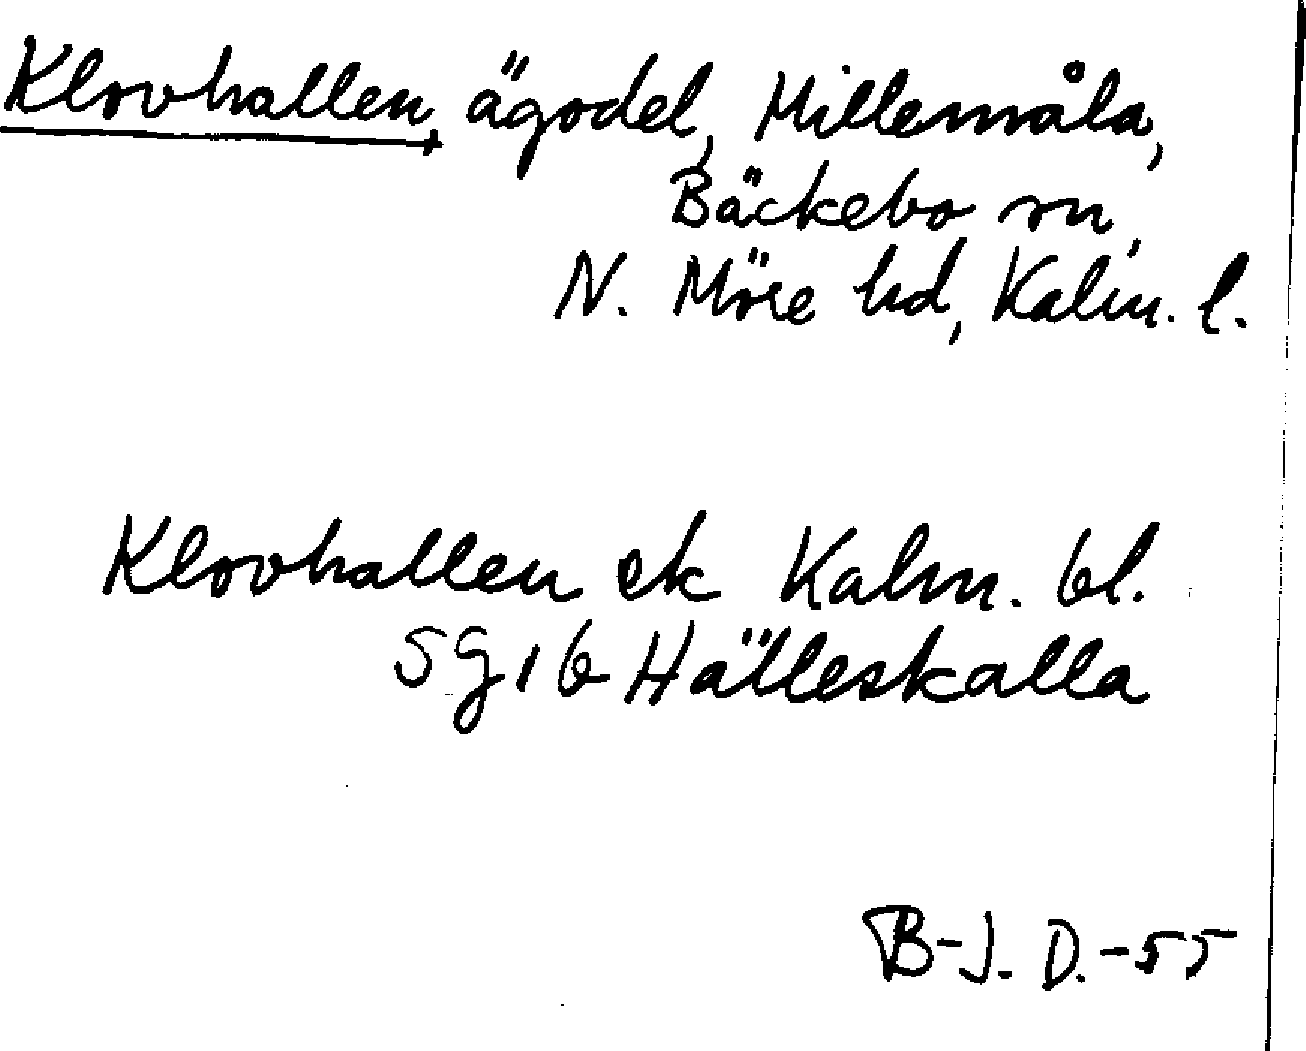 Klovhallen, ägodel, Millemåla,
Bäckebo sn,
N. Möre hd, Kalm. l.
Klovhallen ek Kalm. bl.
5g16 Hälleskalla
B-J. D.-55